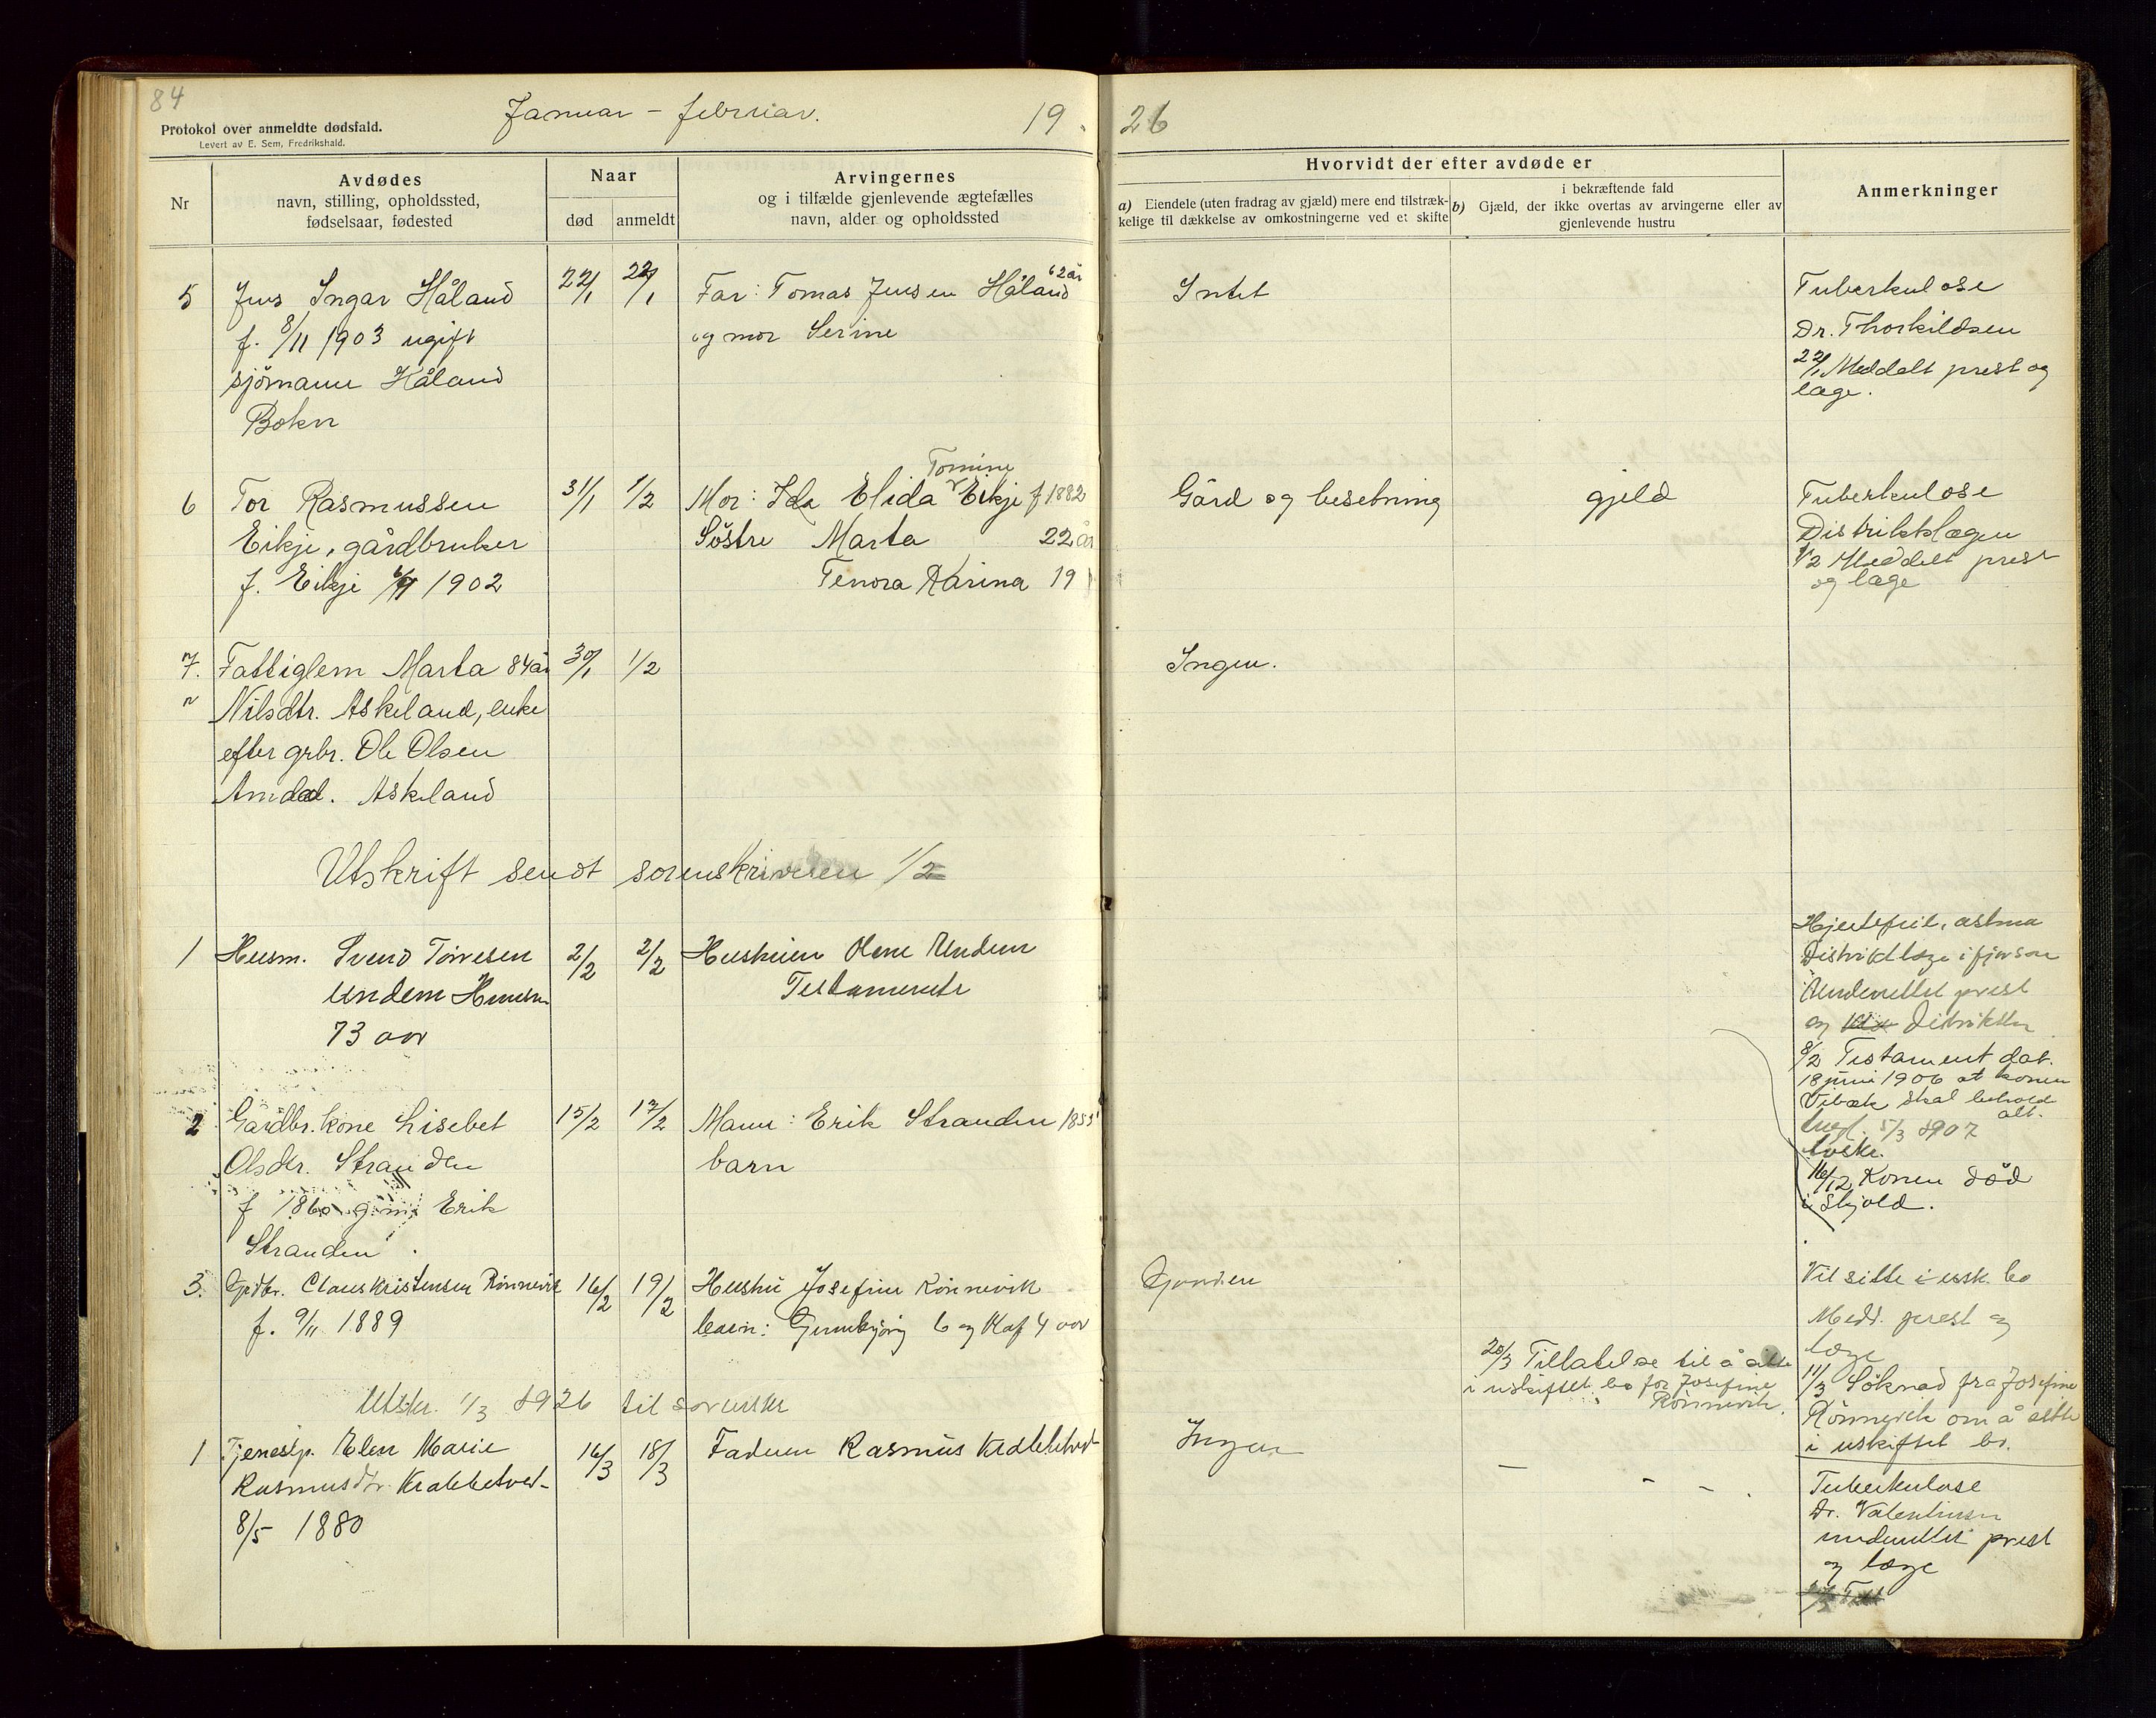 84
Januar - februar. 19
26
Protokol over anmeldte dødsfald.
Levert av E. Sem, Fredrikshald.
Nr
Avdødes
navn, stilling, opholdssted,
fødselsaar, fødested
Naar
død
anmeldt
Arvingernes
og i tilfælde gjenlevende ægtefælles
navn, alder og opholdssted
Hvorvidt der efter avdøde er
a) Eiendele (uten fradrag av gjæld) mere end tilstræk-
kelige til dækkelse av omkostningerne ved et skifte
i bekræftende fald
b) Gjæld, der ikke overtas av arvingerne eller av
gjenlevende hustru
Anmerkninger
5
Jens Ingar Håland
f. 8/11 1903 ugift
sjömann Håland
Bokn
22/1
22/1
62 år
Far: Tomas Jensen Håland
og mor Serine
Intet
Tuberkulose
Dr. Thorkildsen
22/1 Meddelt prest og
læge.
6
Tor Rasmussen
Eikje, gårdbruker
f. Eikje 1902
31/1
1/2
Tomine
Mor: Ida Elida Eikje f 1882
Söstre Marta 22 år
Tenora Karina 19
Gård og besetning
gjeld
Tuberkulose
Distriktslægen
1/2 Meddelt prest
og læge
7.
Fattiglem Marta 84 år
Nilsdtr. Askeland, enke
efter grbr. Ole Olsen
Amdal. Askeland
30/1
1/2
Ingen.
Utskrift sendt sorenskriveren 1/2
1
Husm. Svend Torvesen
Undem
73 aar
2/2
2/2
Hustruen Olene Undem
Testamente
Hjertefeil, astma
Distriktslæge i fjor som
Underrettet prest
og
8/2 Testament dat.
18 juni 1906 at konen
skal behold
alt.
5/3 1907
16/12 Konen död
i Skjold.
2
Gårdbr. kone Lisebet
Olsdtr. Stranden
f 1860 g. m. Erik
Stranden.
15/2
17/2
Mann: Erik Stranden 1855
barn
3.
Grdbr. Claus Kristensen Rönnevik
f. 9/11 1889
16/2
19/2
Hustru Josefine Rönnevik
barn: Gunbjörg 6 og Olaf 4 aar
Gaarden
20/3 Tillatelse til å sitte
i uskiftet bo for Josefine
Rönnevik.
Vil sitte i usk. bo
Medd. prest og
læge
11/3 Söknad fra Josefine
Rönnevik om å sitte
i uskiftet bo.
Utskr. 1/3 1926 til sorenskr
1
Tjenestp. Elen Marie
Rasmusdtr. Krabbetveit
8/5 1880
16/3
18/3
Faderen Rasmus Krabbetveit
Ingen
— - - .
Tuberkulose
Dr. Valentinsen
underrettet prest
og læge